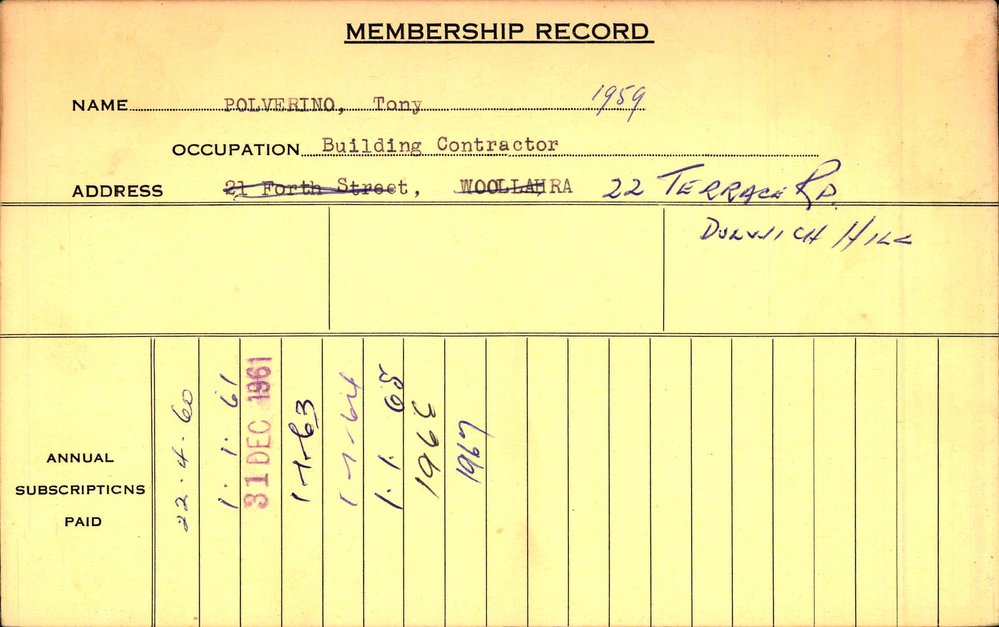 MEMBERSHIP RECORD
NAME POLVERINO, Tony 1959
OCCUPATION Building Contractor
ADDRESS 21 Forth Street, WOOLLAHRA 22 TERRACE RD.
DULWICH HILL
ANNUAL
SUBSCRIPTIONS
PAID
22-4-60
1. 1. 61
31 DEC 1961
1-1-63
1-1-64
1. 1. 65
1966
1967